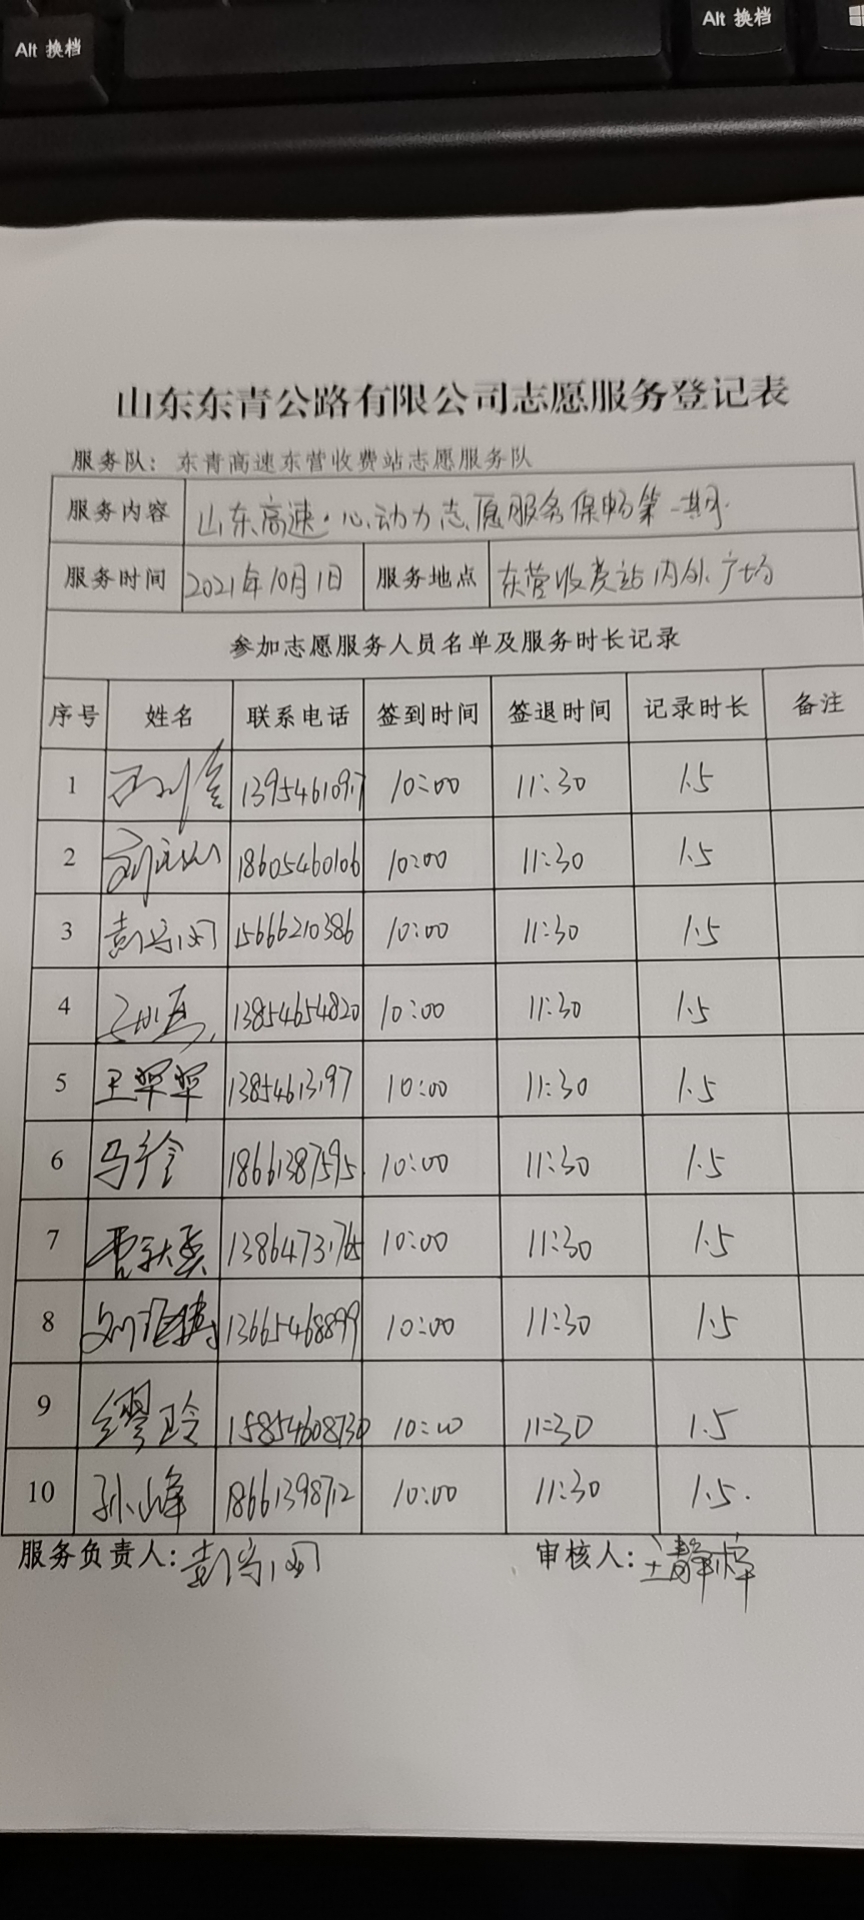 Alt 换档
Alt 换档
山东东青公路有限公司志愿服务登记表
服务队：东青高速东营收费站志愿服务队
服务内容 山东高速·心动力志愿服务保畅第一期
服务时间 2021年10月1日 服务地点 东营收费站内外广场
参加志愿服务人员名单及服务时长记录
序号 姓名 联系电话 签到时间 签退时间 记录时长 备注
1 10:00 11:30 1.5
2 18605460106 10:00 11:30 1.5
3 15666210386 10:00 11:30 1.5
4 13854654820 10:00 11:30 1.5
5 王翠翠 10:00 11:30 1.5
6 10:00 11:30 1.5
7 10:00 11:30 1.5
8 13665468899 10:00 11:30 1.5
9 缪玲 15854608730 10:00 11:30 1.5
10 孙峰 10:00 11:30 1.5.
服务负责人： 审核人：